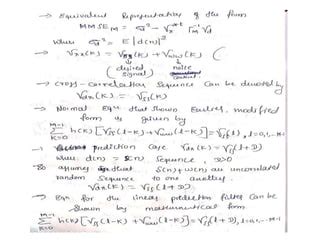 → Equivalent Representation of the form
MMSE_M = σ² - γ_dx^{*t} Γ_M^{-1} γ_d
where σ² = E|d(n)|²
→ γ_xx(K) = γ_ss(K) + γ_ww(K)
(desired signal) (noise
→ cross-correlation sequence can be denoted by
γ_dx(K) = γ_ss(K)
→ Normal Eqn that shown Earlier, modified
form is given by
M-1 Σ K=0 h(K)[γ_ss(l-K) + γ_ww(l-K)] = γ_ss(l), l=0,1,--M-1
prediction case γ_dx(K) = γ_ss(l+D)
where d(n) = sequence,
so assumes that S(n)+w(n) an uncorrelated
random sequence to one another.
γ_dx(K) = γ_ss(l+D).
→ Eqn for the linear prediction filter can be
shown by mathematical form
M-1 Σ K=0 h(K)[γ_ss(l-K) + γ_ww(l-K)] = γ_ss(l+D), l=0,1,--M-1